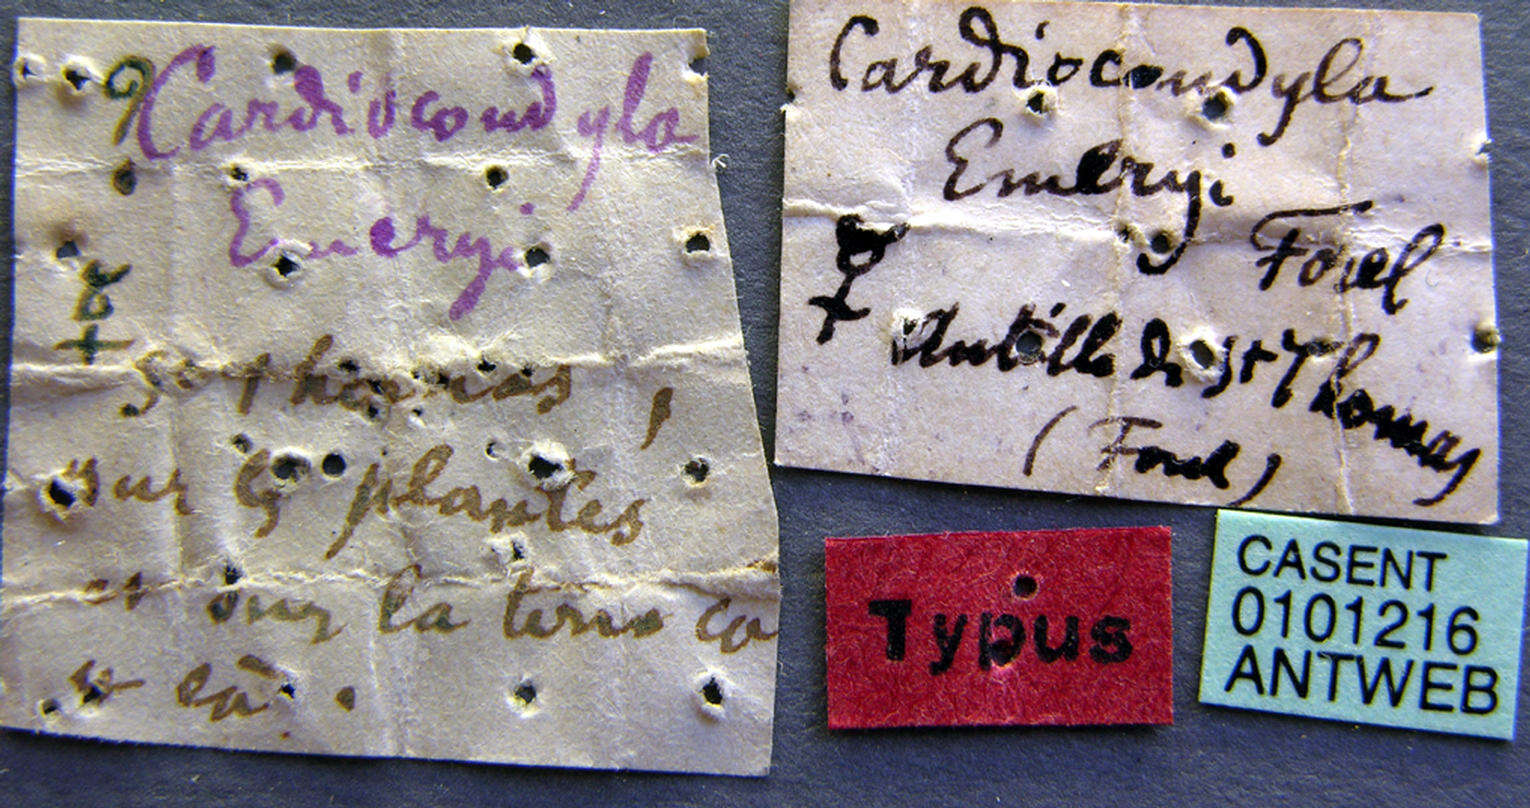 Cardiocondyla
Emeryi
St Thomas,
sur les plantes
et sur la terre ça
et là.
Cardiocondyla
Emeryi
Forel
☿
Antille de St Thomas
(Forel)
Typus
CASENT
0101216
ANTWEB